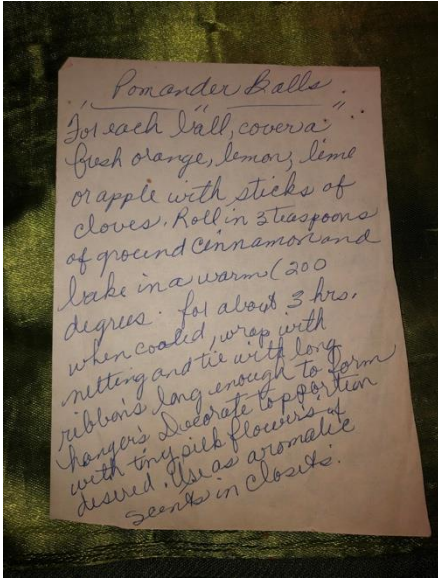 Pomander Balls.
For each ball, cover a
fresh orange, lemon, lime
or apple with sticks of
cloves. Roll in 3 teaspoons
of ground cinnamon and
bake in a warm (200
degrees. for about 3 hrs.
when cooled, wrap with
netting and tie with long
ribbons long enough to form
hangers Decorate top portion
with tiny silk flowers if
desired. Use as aromatic
scents in closets.